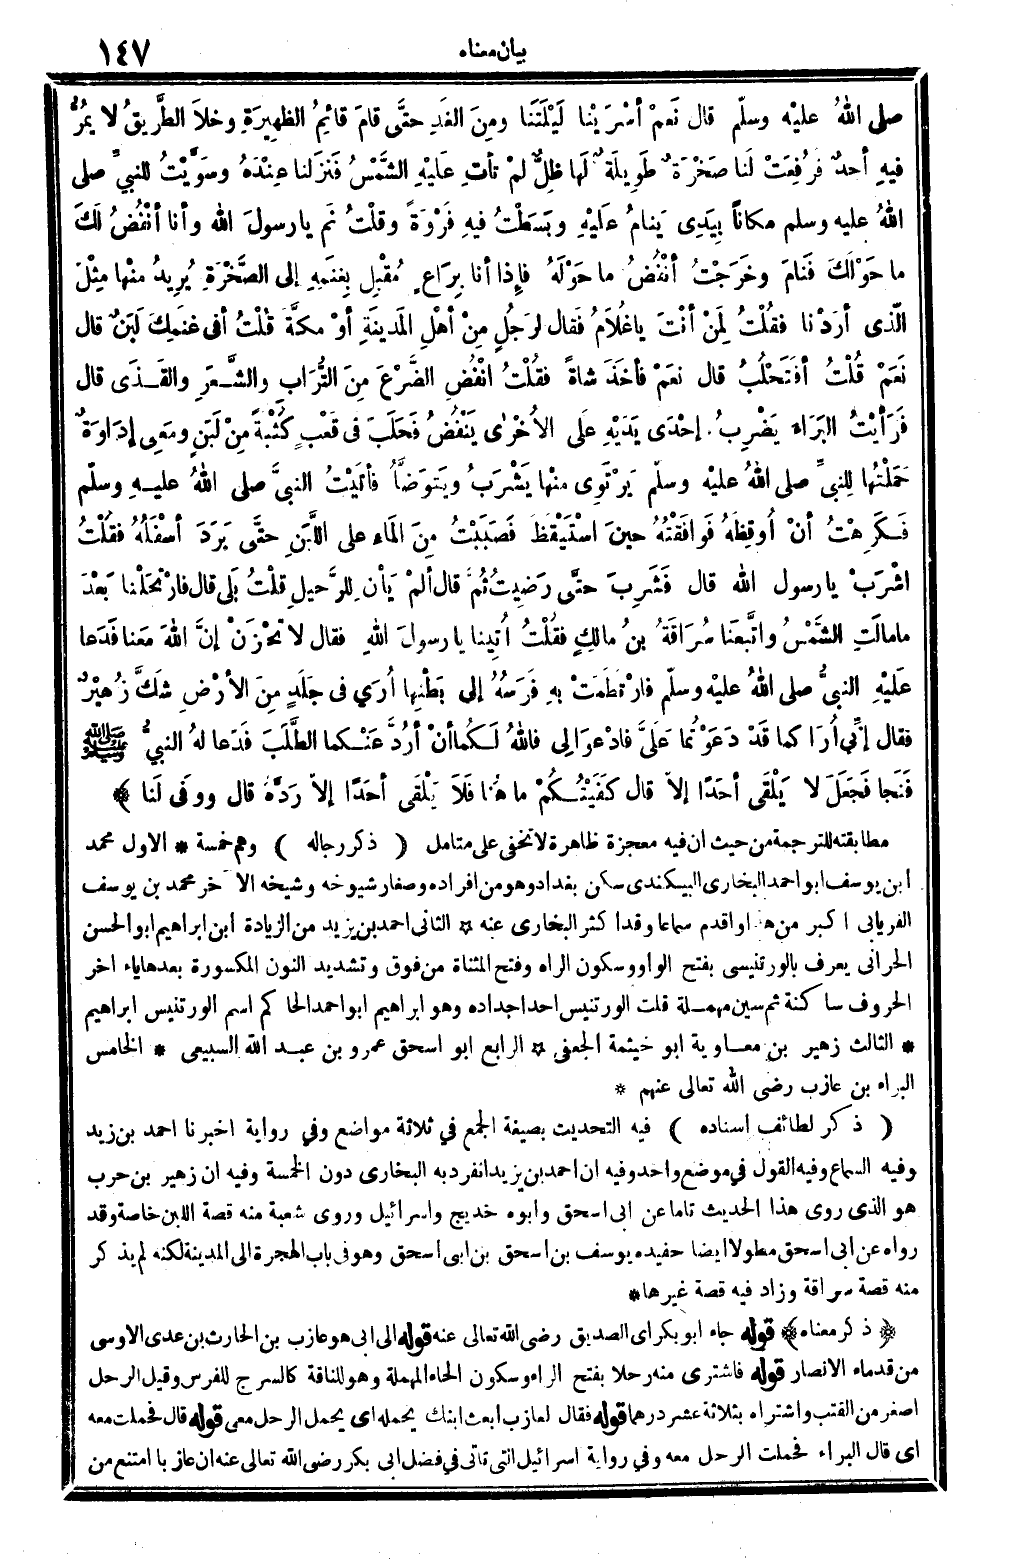 بيان معناه ١٤٧
صلى اللهُ عليْه وسلّم قال نَعَمْ أسْرَيْنا لَيْلَتَنا ومِنَ الغَدِ حتَّى قامَ قائِمُ الظهِيرَةِ وخلاَ الطَّرِيقُ لا يَمُرُّ
فيهِ أحدٌ فَرُفِعَتْ لَنا صَخْرَةٌ طَوِيلَةٌ لَها ظِلٌّ لمْ تأتِ عَليْهِ الشَّمْسُ فَنزَلنا عِنْدَهُ وسَوَّيْتُ للنبيِّ صلى
اللهُ عليه وسلم مكاناً بِيَدِى يَنامُ عَليْهِ وبَسَطْتُ فيهِ فَرْوَةً وقلْتُ نَم يارسولَ الله وأنا أنْفُضُ لَكَ
ما حَوْلَكَ فَنامَ وخَرَجْتُ أنْفُضُ ما حَوْلَهُ فإِذا أنا بِرَاعٍ مُقْبِلٍ بِغنَمِهِ إلى الصَّخْرَةِ يُرِيدُ منْها مِثْلَ
الّذى أرَدْنا فقُلْتُ لِمَنْ أنْتَ ياغُلاَمُ فقال لرَجُلٍ مِنْ أهْلِ المَدِينَةِ أوْ مكَّةَ قُلْتُ أفى غنَمِكَ لَبَنٌ قال
نَعَمْ قُلْتُ أفتَحْلُبُ قال نعَمْ فأخَذَ شاةً فقُلْتُ انْفُضِ الضَّرْعَ مِنَ التُّرَابِ والشَّعَرِ والقَذَى قال
فَرَأيْتُ البَرَاءَ يَضْرِبُ إحْدَى يَدَيْهِ عَلَى الاُخْرَى يَنْفُضُ فَحَلَبَ فى قَعْبٍ كُثْبَةً مِنْ لَبَنٍ ومَعِى إدَاوَةٌ
حَمَلْتُها لِلنبيِّ صلى اللهُ عليْه وسلّم يَرْتَوِى منْها يَشْرَبُ ويَتوَضَّأُ فأتَيْتُ النبيَّ صلى اللهُ عليه وسلّم
فكَرِهْتُ أنْ أُوقِظَهُ فَوَافَقْتُهُ حينَ اسْتَيْقَظَ فَصَبَبْتُ مِنَ المَاءِ على اللَّبَنِ حتَّى بَرَدَ أسْفَلُهُ فقُلْتُ
اشْرَبْ يارسول الله قال فَشَرِبَ حتَّى رَضِيتُ ثُمَّ قال ألمْ يَأنِ للرَّحِيلِ قلْتُ بَلَى قال فارْتَحَلْنا بَعْدَ
مامالَتِ الشَّمْسُ واتَّبعَنا سُرَاقَةُ بنُ مالِكٍ فقُلْتُ أُتِينا يارسولَ اللهِ فقال لا تَحْزَنْ إنَّ اللهَ مَعَنا فَدَعا
عَليْهِ النبيُّ صلى اللهُ عليْه وسلّم فارْتَطَمَتْ بهِ فَرَسُهُ إلى بَطْنِها أُرَى فى جَلَدٍ مِنَ الأرْضِ شَكَّ زُهَيْرٌ
فقال إنِّي أُرَاكما قَدْ دَعَوْتُما عَلَيَّ فادْعوَا لِى فاللهُ لَكُما أنْ أرُدَّ عَنْكما الطَّلَبَ فَدَعا لهُ النبيُّ ﷺ
فَنَجا فَجَعَلَ لا يَلْقَى أحَدًا إلاّ قال كفَيْتُكُمْ ما هُنا فَلاَ يَلْقَى أحَدًا إلاّ رَدَّهُ قال ووفَى لَنا ﴾
مطابقته للترجمة من حيث ان فيه معجزة ظاهرة لا تخفى على متامل ( ذكر رجاله ) وهم خمسة * الاول محمد
ابن يوسف ابو احمد البخارى البيكندى سكن بغداد وهو من افراده وصغار شيوخه وشيخه الآخر محمد بن يوسف
الفريابى اكبر من هذا واقدم سماعا وقد اكثر البخارى عنه * الثانى احمد بن يزيد من الزيادة ابن ابراهيم ابو الحسن
الحرانى يعرف بالورتنيسى بفتح الواو وسكون الراء وفتح المثناة من فوق وتشديد النون المكسورة بعدها ياء اخر
الحروف ساكنة ثم سين مهملة قلت الورتنيس احد اجداده وهو ابراهيم ابو احمد الحاكم اسم الورتنيس ابراهيم
* الثالث زهير بن معاوية ابو خيثمة الجعفى * الرابع ابو اسحق عمرو بن عبد الله السبيعى * الخامس
البراء بن عازب رضى الله تعالى عنهم *
( ذكر لطائف اسناده ) فيه التحديث بصيغة الجمع في ثلاثة مواضع وفي رواية اخبرنا احمد بن زيد
وفيه السماع وفيه القول في موضع واحد وفيه ان احمد بن يزيد انفرد به البخارى دون الخمسة وفيه ان زهير بن حرب
هو الذى روى هذا الحديث تاما عن ابى اسحق وابوه خديج واسرائيل وروى شعبة منه قصة اللبن خاصة وقد
رواه عن ابى اسحق مطولا ايضا حفيده يوسف بن اسحق بن ابى اسحق وهو فى باب الهجرة الى المدينة لكنه لم يذكر
منه قصة سراقة وزاد فيه قصة غيرها *
﴿ ذكر معناه ﴾ قوله جاء ابو بكر اى الصديق رضى الله تعالى عنه قوله الى ابى هو عازب بن الحارث بن عدى الاوسى
من قدماء الانصار قوله فاشترى منه رحلا بفتح الراء وسكون الحاء المهملة وهو للناقة كالسرج للفرس وقيل الرحل
اصغر من القتب واشتراه بثلاثة عشر درهما قوله فقال لعازب ابعث ابنك يحمله اى يحمل الرحل معى قوله قال فحملت معه
اى قال البراء فحملت الرحل معه وفي رواية اسرائيل التى تاتى في فضل ابى بكر رضى الله تعالى عنه ان عازبا امتنع من